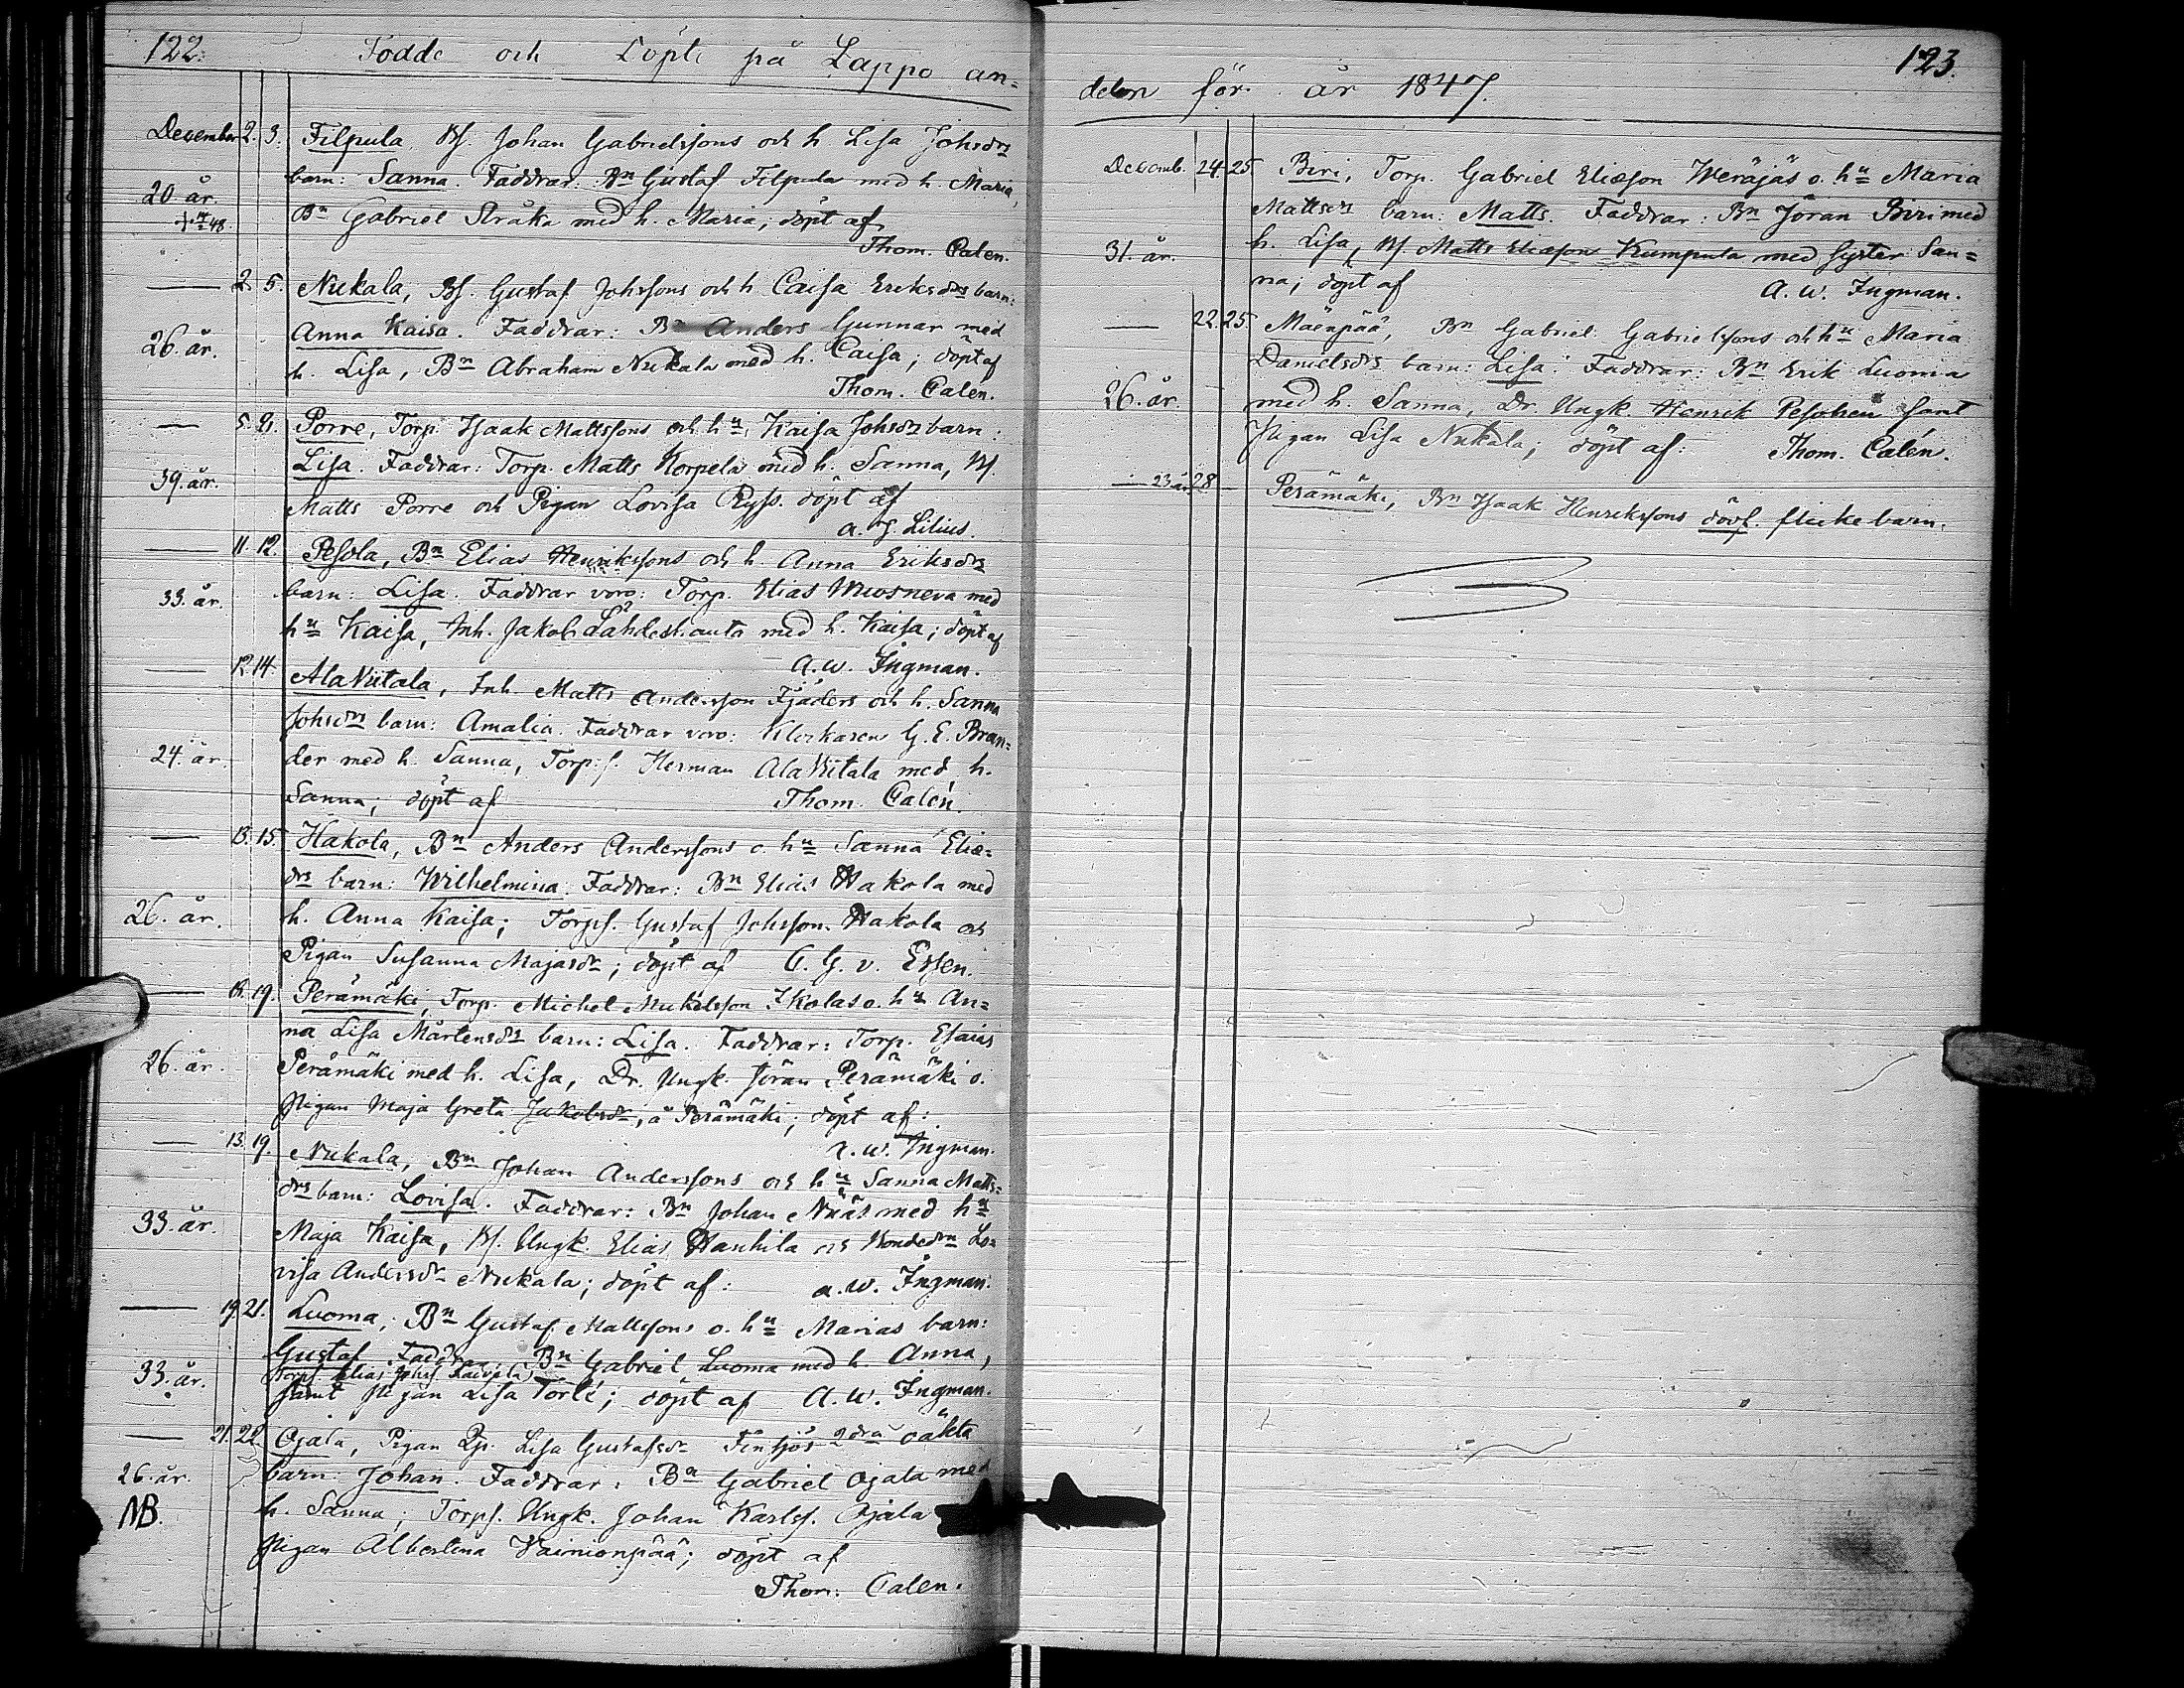 122.
Födde och Döpte på Lappo an=
December 2. 3. Filpula, Bs. Johan Gabrielssons och h. Lisa Johsdrs
barn: Sanna. Faddrar: Bn Gustaf Filpula med h. Maria,
20 år.
Bn Gabriel Stråka med h. Maria; döpt af
Thom. Calen.
— 2. 5. Nukala, Bs. Gustaf Johssons och h. Caisa Eriksdrs barn:
Anna Kaisa. Faddrar: Bn Anders Gunnar med
26. år.
h. Lisa, Bn Abraham Nukala med h. Caisa; döpt af
Thom. Calen.
— 5. 21. Porre, Torp. Isaak Mattssons och hu Kaisa Johsdrs barn:
Lisa. Faddrar: Torp. Matts Korpela med h. Sanna, Bs.
39. år.
Matts Porre och Pigan Lovisa Ryss. döpt af
A. G. Lilius.
— 11. 12. Pesola, Bn Elias Henrikssons och h. Anna Eriksdrs
barn: Lisa. Faddrar voro: Torp. Elias Wuosneva med
33. år.
hu Kaisa, Inh. Jakob Lähdeshauta med h. Kaisa; döpt af
A. W. Ingman.
— 12. 14. AlaViitala, Inh. Matts Andersson Fjäders och h. Sanna
Johsdrs barn: Amalia. Faddrar voro: Klockaren G. E. Bran=
24. år.
der med h. Sanna, Torp:s. Herman AlaViitala med h.
Sanna; döpt af Thom. Calén.
— 13. 15. Hakola, Bn Anders Anderssons o. hu Sanna Eliæ=
drs barn: Wilhelmina. Faddrar: Bn Elias Hakola med
26. år.
h. Anna Kaisa; Torps. Gustaf Johsson Hakola och
Pigan Susanna Majasdr; döpt af C. G. v. Essen.
— 18. 19. Perämäki, Torp. Michel Mickelsson Ikolas o. hu An=
na Lisa Mårtensdrs barn: Lisa. Faddrar: Torp. Esaias
26. år.
Perämäki med h. Lisa, Dr. Ungk. Jöran Perämäki o.
Pigan Maja Greta Jakobsdr, å Perämäki; döpt af:
A. W. Ingman.
— 13. 19. Nukala, Bn Johan Anderssons och hu Sanna Matts=
drs barn: Lovisa. Faddrar: Bn Johan Näás med hu
33. år.
Maja Kaisa, Bs. Ungk. Elias Hanhila och Bondedrn Lo=
visa Andersdr Nukala; döpt af: A. W. Ingman.
— 19. 21. Luoma, Bn Gustaf Mattssons o. hu Marias barn:
Gustaf. Faddrar: Bn Gabriel Luoma med h. Anna,
33. år.
samt Pigan Lisa Torti; döpt af A. W. Ingman.
— 21. 22. Ojala, Pigan Qp. Lisa Gustafsdr Finsjös 2dra oäkta
26. år.
barn: Johan. Faddrar: Bn Gabriel Ojala med
NB.
h. Sanna; Torps. Ungk. Johan Karlss. Ojala
Pigan Albertina Vainionpää; döpt af
Thom. Calen.
123.
delen för år 1847.
Decemb. 24. 25. Biri, Torp. Gabriel Eliæson Weräjäs o. hu Maria
Mattsdrs barn: Matts. Faddrar: Bn Jöran Biri med
31. år.
h. Lisa, Bs. Matts Eliæson Kumpula med syster San=
na; döpt af A. W. Ingman.
— 22. 25. Mäenpää, Bn Gabriel Gabrielssons och hu Maria
Danielsdrs barn: Lisa. Faddrar: Bn Erik Luoma
26. år.
med h. Sanna, Dr. Ungk. Henrik Pesonen samt
Pigan Lisa Nukala; döpt af: Thom. Calén.
— 28 — Perämäki, Bn Isaak Henrikssons dövf. flickebarn.